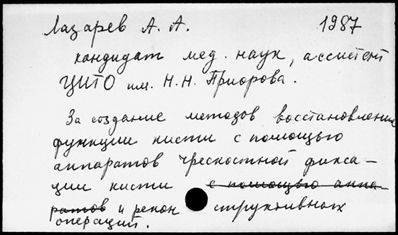 Лазарев А. А. 1987
кандидат мед. наук, ассистент
ЦИТО им. Н.Н. Приорова.
За создание методов восстановления
функции кисти с помощью
аппаратов чрескостной фикса-
ции кисти с помощью аппа-
ратов и рекон структивных
операций.